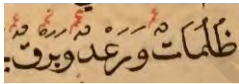 ظُلُمَاتٌ وَرَعْدٌ وَبَرْقٌ